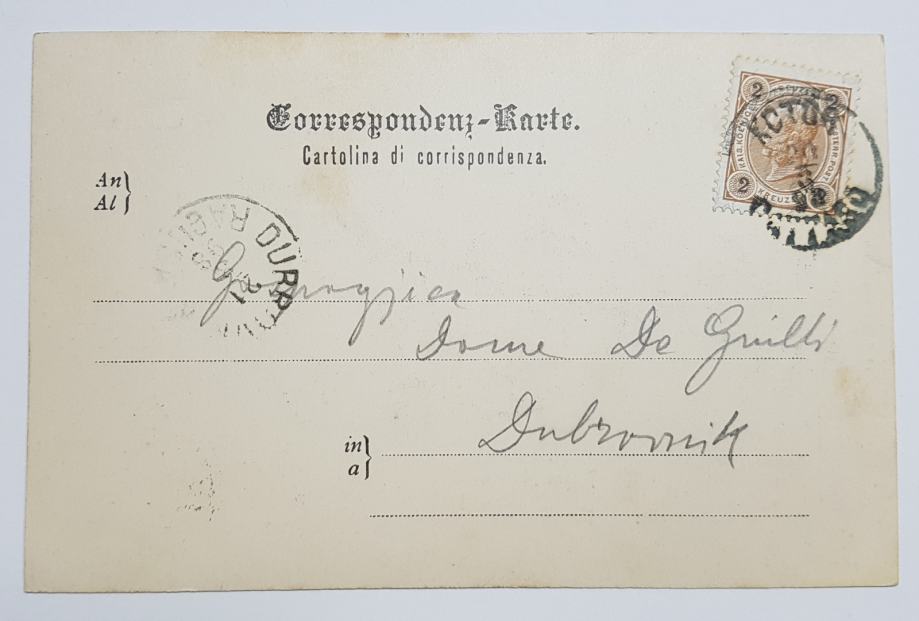 Correspondenz-Karte.
Cartolina di corrispondenza.
An
Al
2 2
KAIS. KOENIGL. OESTERR. POST
2
KREUZER
KOTOR
CATTARO
RAGUSA
DUBR
21
Dome De Giulli
Dubrovnik
in
a